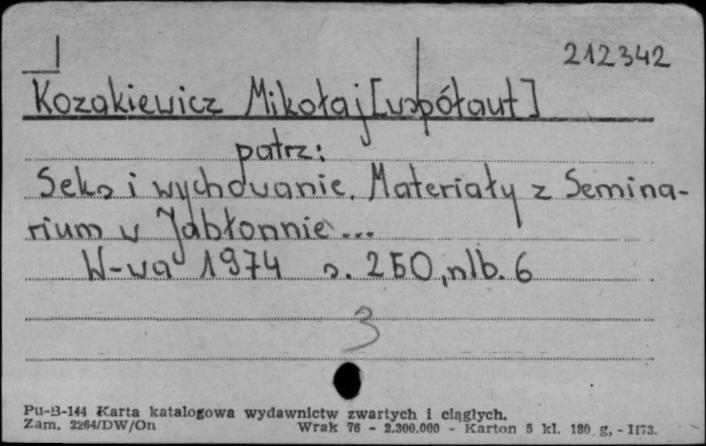 212342
Kozakiewicz Mikołaj [współaut]
patrz:
Seks i wychowanie. Materiały z Semina-
rium w Jabłonnie...
W-wa 1974 s. 250, nlb. 6
3
Pu-B-144 Karta katalogowa wydawnictw zwartych i ciągłych.
Zam. 2264/DW/On Wrak 76 - 2.300.000 - Karton 5 kl. 180 g, - 1173.